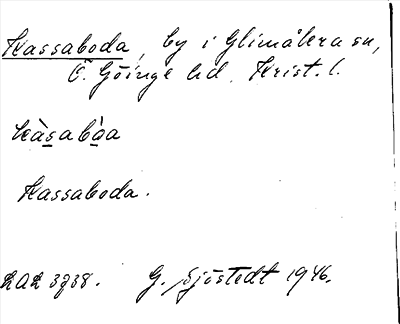 Kassaboda, by i Glimåkra sn,
Ö. Göinge hd, Krist. l.
kàsabòa
Kassaboda.
G. Sjöstedt 1946.